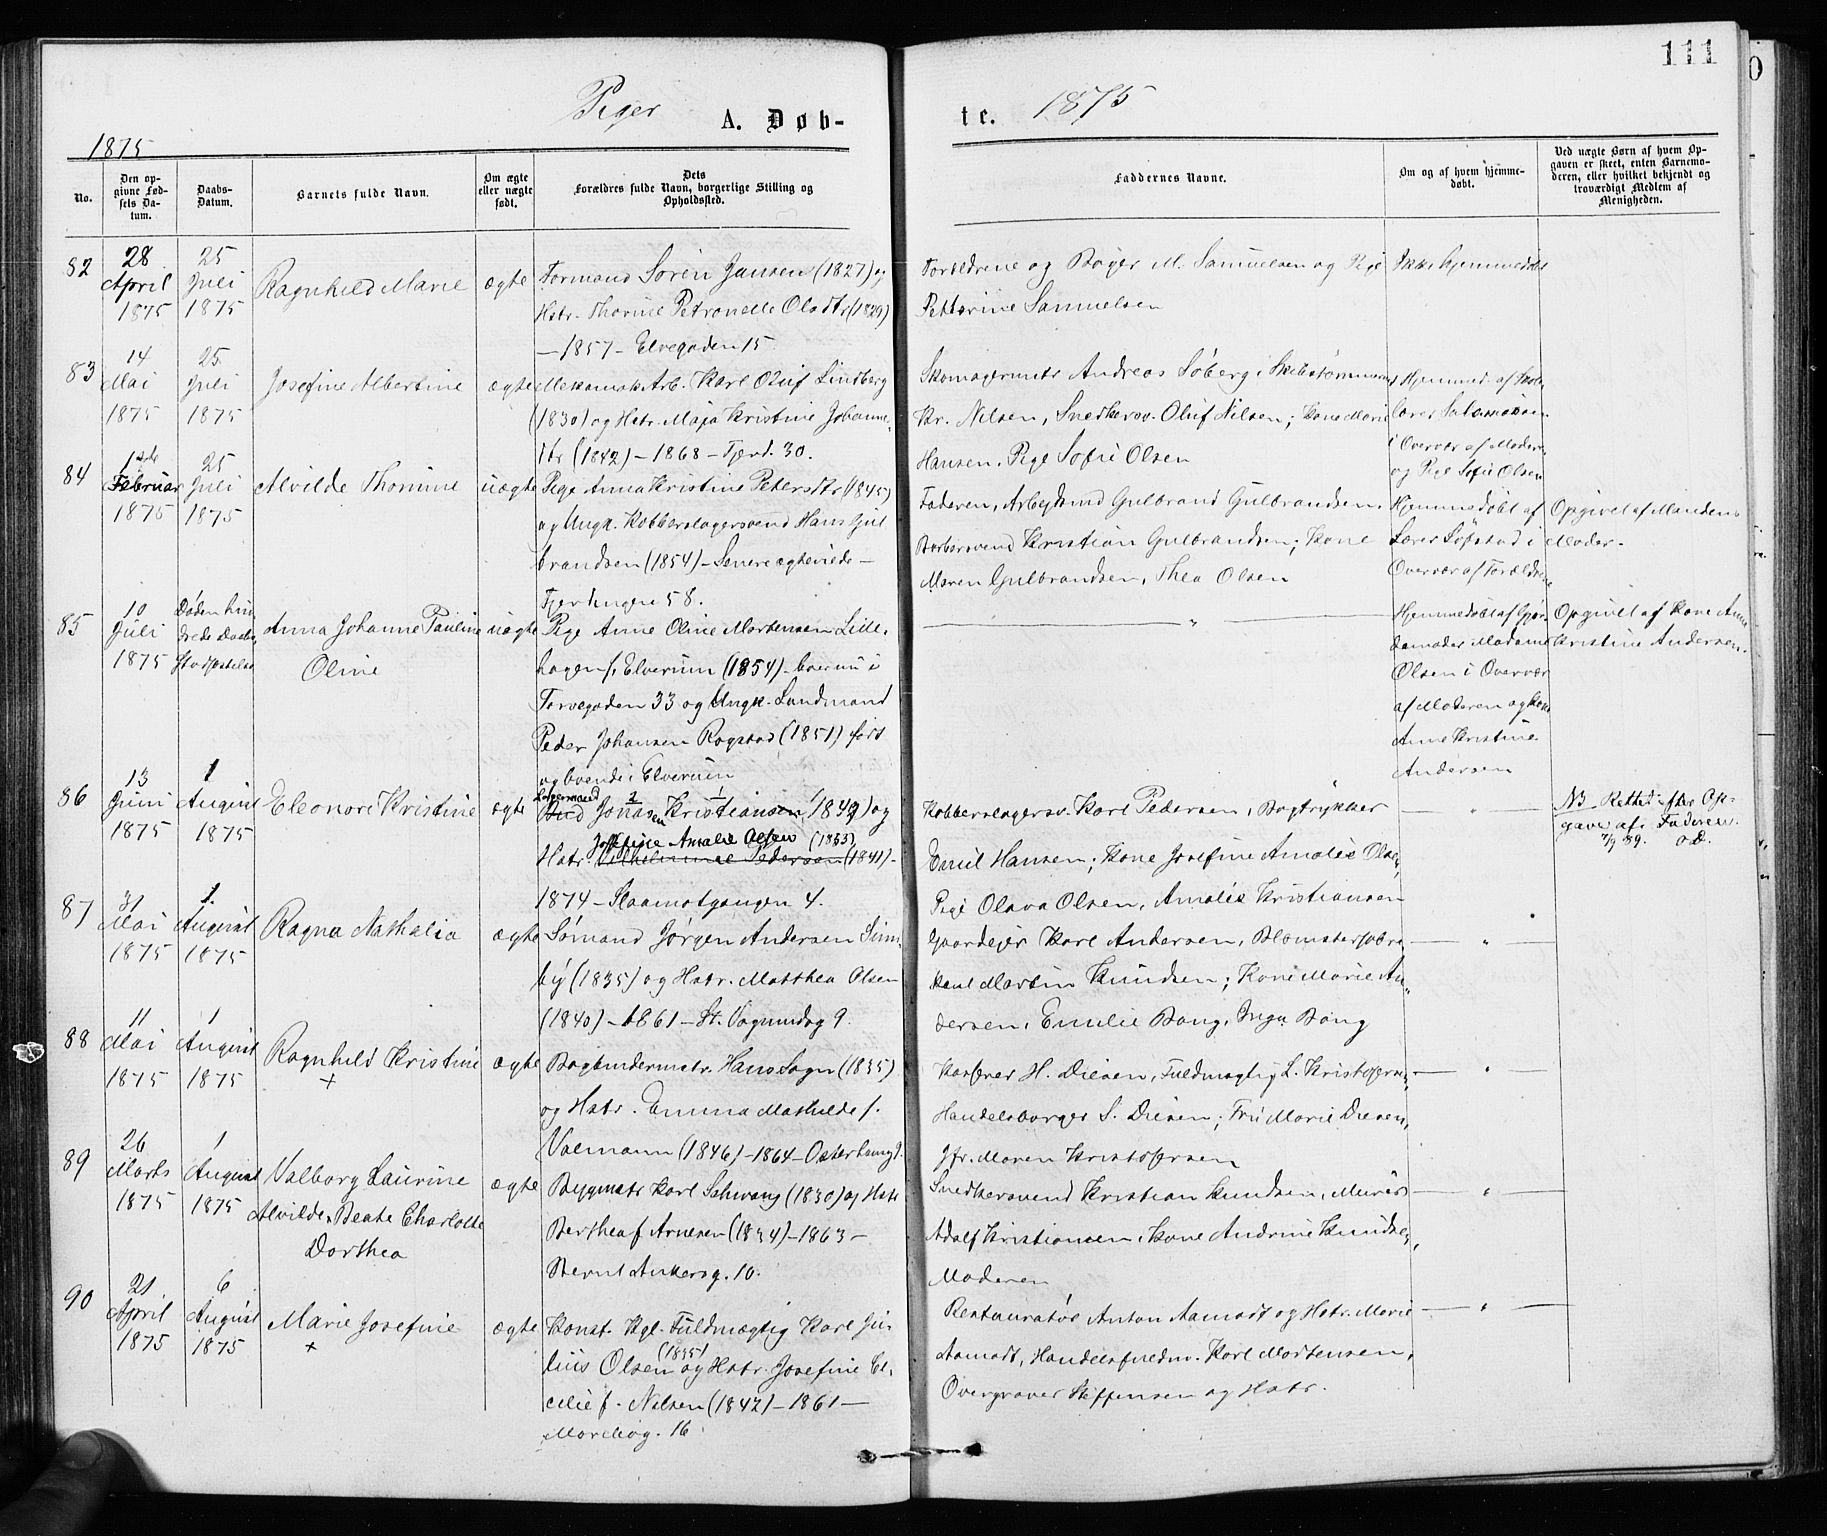 111
Piger A. Døb-
te. 1875
1875
No.
Den op-
givne Fød-
sels Da-
tum.
Daabs-
Datum.
Barnets fulde Navn.
Om ægte
eller uægte
født.
Dets
Forældres fulde Navn, borgerlige Stilling og
Opholdssted.
Faddernes Navne.
Om og af hvem hjemme-
døbt.
Ved uægte Børn af hvem Op-
gaven er skeet, enten Barnemo-
deren, eller hvilket bekjendt og
troværdigt Medlem af
Menigheden.
82
28
April
1875
25
Juli
1875
Ragnhild Marie
ægte
Formand Søren Jansen (1827) og
Hstr. Thorine Petronelle Olsdtr (1829)
— 1857 — Elvegaden 15
Forældrene og Bager M. Samuelsen og Pige
Petterine Samuelsen
Ikke hjemmedøbt
83
14
Mai
1875
25
Juli
1875
Josefine Albertine
ægte
Mekanisk Arb. Karl Oluf Lindberg
(1830) og Hstr. Maja Kristine Johanne-
dtr (1842) — 1868 — Fjerd. 30.
Skomagermstr Andreas Søberg, Skibstømmerm.
Kr. Nilsen, Snedkersv. Oluf Nilsen; Kone Marie
Hansen, Pige Sofie Olsen
Hjemmed. af Skole-
lærer Salomonsen
i Overvær af Moderen
og Pige Sofie Olsen
84
1ste
Februar
1875
25
Juli
1875
Alvilde Thomine
uægte
Pige Anna Kristine Petersdtr (1845)
og Ungk. Kobberslagersvend Hans Gul
brandsen (1854) — Senere ægteviede —
Fjerdingen 58.
Faderen, Arbeidsmd Gulbrand Gulbrandsen,
Barbersvend Kristian Gulbrandsen; Kone
Maren Gulbrandsen, Thea Olsen
Hjemmedøbt af
Lærer Søfstad i
Overvær af Forældrene
Opgivet af Mandens
Moder.
85
10
Juli
1875
Døden hin
drede Daabs
Stadfæstelse
Anna Johanne Pauline
Oline
uægte
Pige Anne Oline Mortensen Lille-
hagen f. Elverum (1854) — boer nu i
Torvegaden 33 og Ungk. Landmand
Peder Johansen Rogstad (1851) født
og boende i Elverum
— " —
Hjemmedøbt af Gjor-
demoder Madame
Olsen i Overvær
af Moderen og Kone
Anne Kristine
Andersen
Opgivet af Kone Anne
Kristine Andersen.
86
13
Juni
1875
1
August
1875
Eleonore Kristine
ægte
Lagermand
Bud Jonassen Kristiansen (1849) og
Josefine Amalie Olsen (1853)
Hstr. Vilhelmine Pedersen (1841) —
1874 — Slaamotgangen 4.
Kobberslagersv. Karl Pedersen, Bogtrykker
Emil Hansen; Kone Josefine Amalie Olsen,
Pige Olava Olsen, Amalie Kristiansen
— " —
NB Rettet efter Op-
gave af Faderen.
7/9 89.
87
31
Mai
1875
1
August
1875
Ragna Nathalia
ægte
Sømand Jørgen Andersen Sinn-
by (1835) og Hstr. Matthea Olsen
(1840) — 1861 — St. Vognmdsg 9.
Gaardejer Karl Andersen, Blomsterfabri-
kant Martin Knudsen; Kone Marie An-
dersen, Emilie Bang, Inga Bang
— " —
88
11
Mai
1875
1
August
1875
Ragnhild Kristine
+
ægte
Bogbindermstr. Hans Sagn (1835)
og Hstr. Emma Mathilde f.
Valmann (1846) — 1864 — Østerhausg 9.
Kasserer H. Diesen, Fuldmægtig L. Kristofersen,
Handelsborger S. Diesen; Fru Marie Diesen,
Jfr. Maren Kristofersen
— " —
89
26
Marts
1875
1
August
1875
Valborg Laurine
Alvilde Beate Charlotte
Dorthea
ægte
Bygmstr Karl Schwang (1830) og Hstr
Berthea f Arnesen (1834) — 1863 —
Bernt Ankersg. 10.
Snedkersvend Kristian Knudsen, Murer
Adolf Kristiansen, Kone Andrine Knudsen,
Moderen
— " —
90
21
April
1875
6
August
1875
Marie Josefine
+
ægte
Konst. Kgl. Fuldmægtig Karl Ju-
(1835)
lius Olsen og Hstr. Josefine Ce-
cilie f. Nilsen (1842) — 1861 —
Maribog. 16
Restauratør Anton Aamodt og Hstr. Marie
Aamodt, Handelsfuldm. Karl Mortensen,
Overgraver Steffensen og Hstr.
— " —